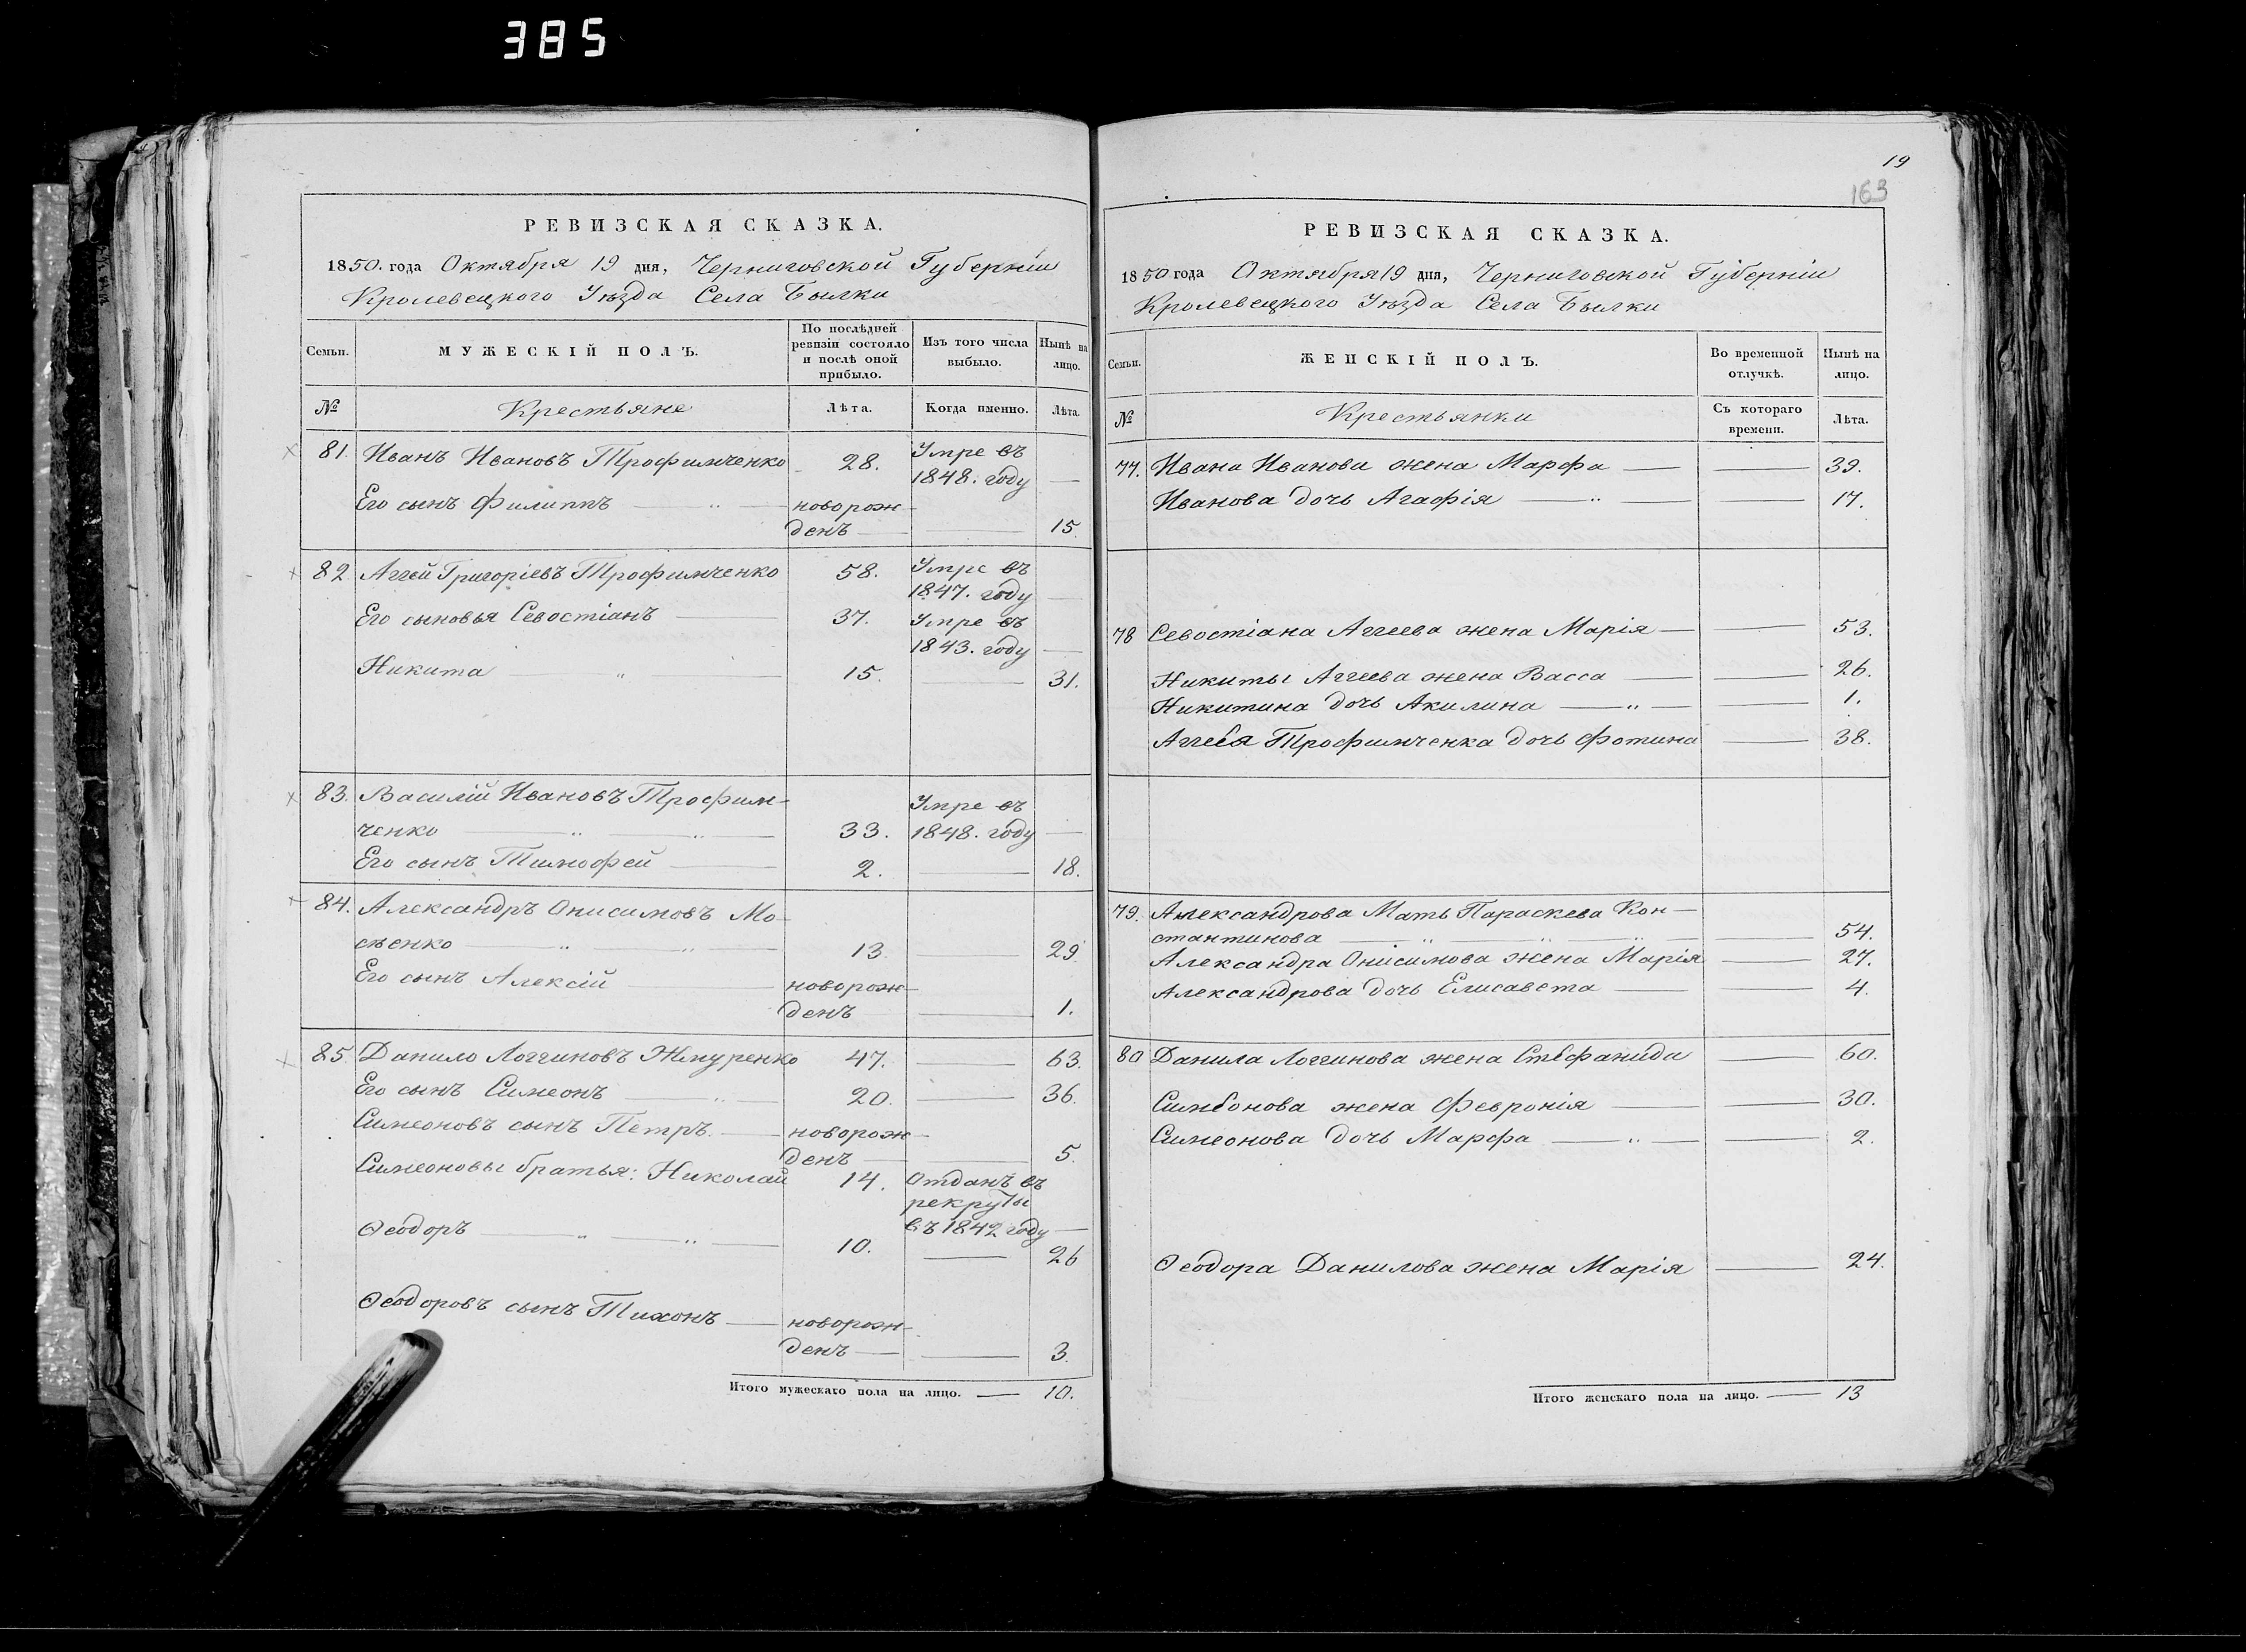 385
РЕВИЗСКАЯ СКАЗКА.
1850. года Октября 19 дня, Черниговской Губерніи
Кролевецкого Уѣзда Села Былки
Семьи.
МУЖЕСКІЙ ПОЛЪ.
По послѣдней
ревизіи состояло
и послѣ оной
прибыло.
Изъ того числа
выбыло.
Нынѣ на
лицо.
№ Крестьяне Лѣта. Когда именно. Лѣта.
81. Иванъ Ивановъ Трофимченко 28. Умре въ
1848. году
Его сынъ Филиппъ новорож-
денъ 15.
82. Аггей Григоріевъ Трофимченко 58. Умре въ
1847. году
Его сыновья Севостіанъ 37. Умре въ
1843. году
Никита 15. 31.
83. Василій Ивановъ Трофим-
Умре въ
ченко 33. 1848. году
Его сынъ Тимофей 2. 18.
84. Александръ Онисимовъ Мо-
сѣенко 13. 29
Его сынъ Алексій новорож-
денъ 1.
85. Данило Логгиновъ Жмуренко 47. 63.
Его сынъ Симеонъ 20. 36.
Симеоновъ сынъ Петръ новорож-
денъ 5.
Симеоновы братья: Николай 14. Отданъ въ
рекруты
въ 1842 году
Ѳеодоръ 10. 26
Ѳеодоровъ сынъ Тихонъ новорож-
денъ 3.
Итого мужескаго пола на лицо. 10.
19
163
РЕВИЗСКАЯ СКАЗКА.
1850 года Октября 19 дня, Черниговской Губерніи
Кролевецкого Уѣзда Села Былки
Семьи.
ЖЕНСКІЙ ПОЛЪ.
Во временной
отлучкѣ.
Нынѣ на
лицо.
№ Крестьянки
Съ котораго
времени.
Лѣта.
77. Ивана Иванова жена Марфа 39.
Иванова дочь Агафія 17.
78 Севостіана Аггеева жена Марія 53.
Никиты Аггеева жена Васса 26.
Никитина дочь Акилина 1.
Аггея Трофимченка дочь Фотина 38.
79. Александрова Мать Параскева Кон-
стантинова 54.
Александра Онисимова жена Марія 27.
Александрова дочь Елисавета 4.
80 Данила Логгинова жена Стефанида 60.
Симеонова жена Февронія 30.
Симеонова дочь Марфа 2.
Ѳеодора Данилова жена Марія 24.
Итого женскаго пола на лицо. 13